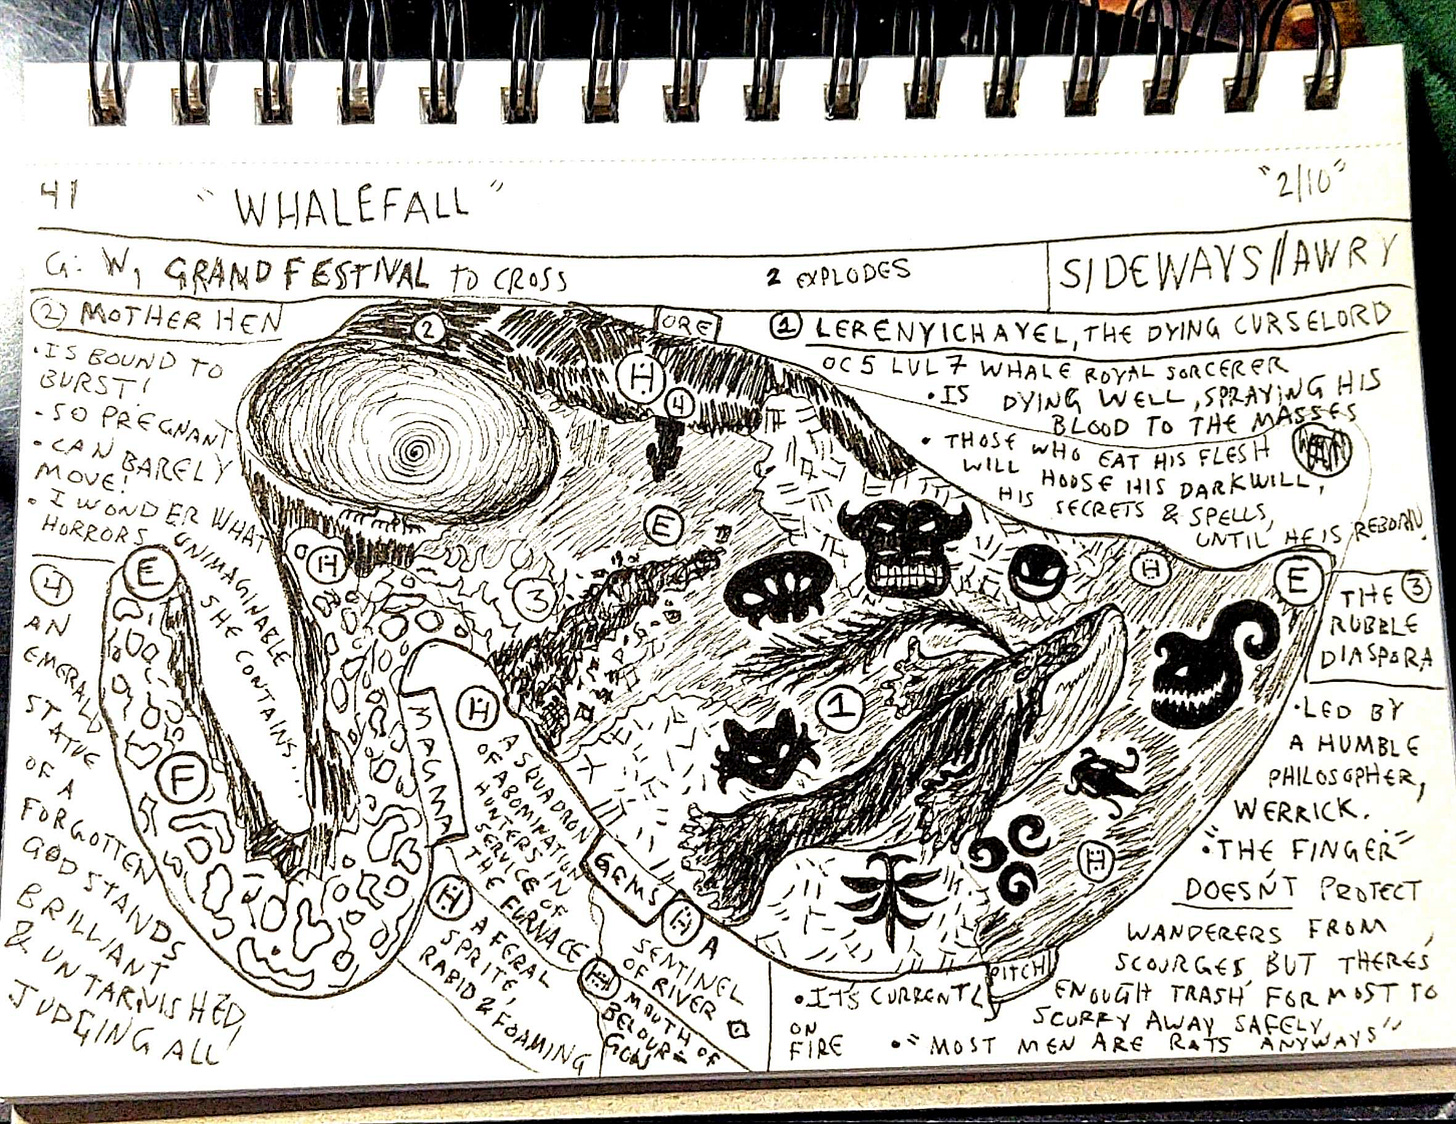 41
"WHALEFALL"
"2/10"
G: W, GRAND FESTIVAL TO CROSS
2 EXPLODES
SIDEWAYS//AWRY
② MOTHER HEN
• IS BOUND TO
BURST!
• SO PREGNANT
• CAN BARELY
MOVE!
• I WONDER WHAT
HORRORS UNIMAGINABLE
SHE CONTAINS...
2
ORE
H
4
① LERENYICHAYEL, THE DYING CURSELORD
OC 5 LVL 7 WHALE ROYAL SORCERER
• IS DYING WELL, SPRAYING HIS
BLOOD TO THE MASSES
• THOSE WHO EAT HIS FLESH
WILL HOOSE HIS DARK WILL,
HIS SECRETS & SPELLS,
UNTIL HE IS REBORN.
E
H
3
E
H
E
1
F
H
④
AN
EMERALD
STATUE
OF A
FORGOTTEN
GOD STANDS
BRILLIANT
& UNTARNISHED,
JUDGING ALL
MAGMA
Ⓗ A SQUADRON
OF ABOMINATION
HUNTERS IN
SERVICE OF
THE FURNACE
Ⓗ A FERAL
SPRITE,
RABID & FOAMING
GEMS
Ⓗ A
SENTINEL
OF RIVER
Ⓗ MOUTH OF
PITCH
THE ③
RUBBLE
DIASPORA
• LED BY
A HUMBLE
PHILOSOPHER,
WERRICK.
• "THE FINGER"
DOESN'T PROTECT
WANDERERS FROM
SCOURGES, BUT THERE'S
ENOUGH TRASH FOR MOST TO
SCURRY AWAY SAFELY
• "MOST MEN ARE RATS ANYWAYS"
• IT'S CURRENTL
ON
FIRE